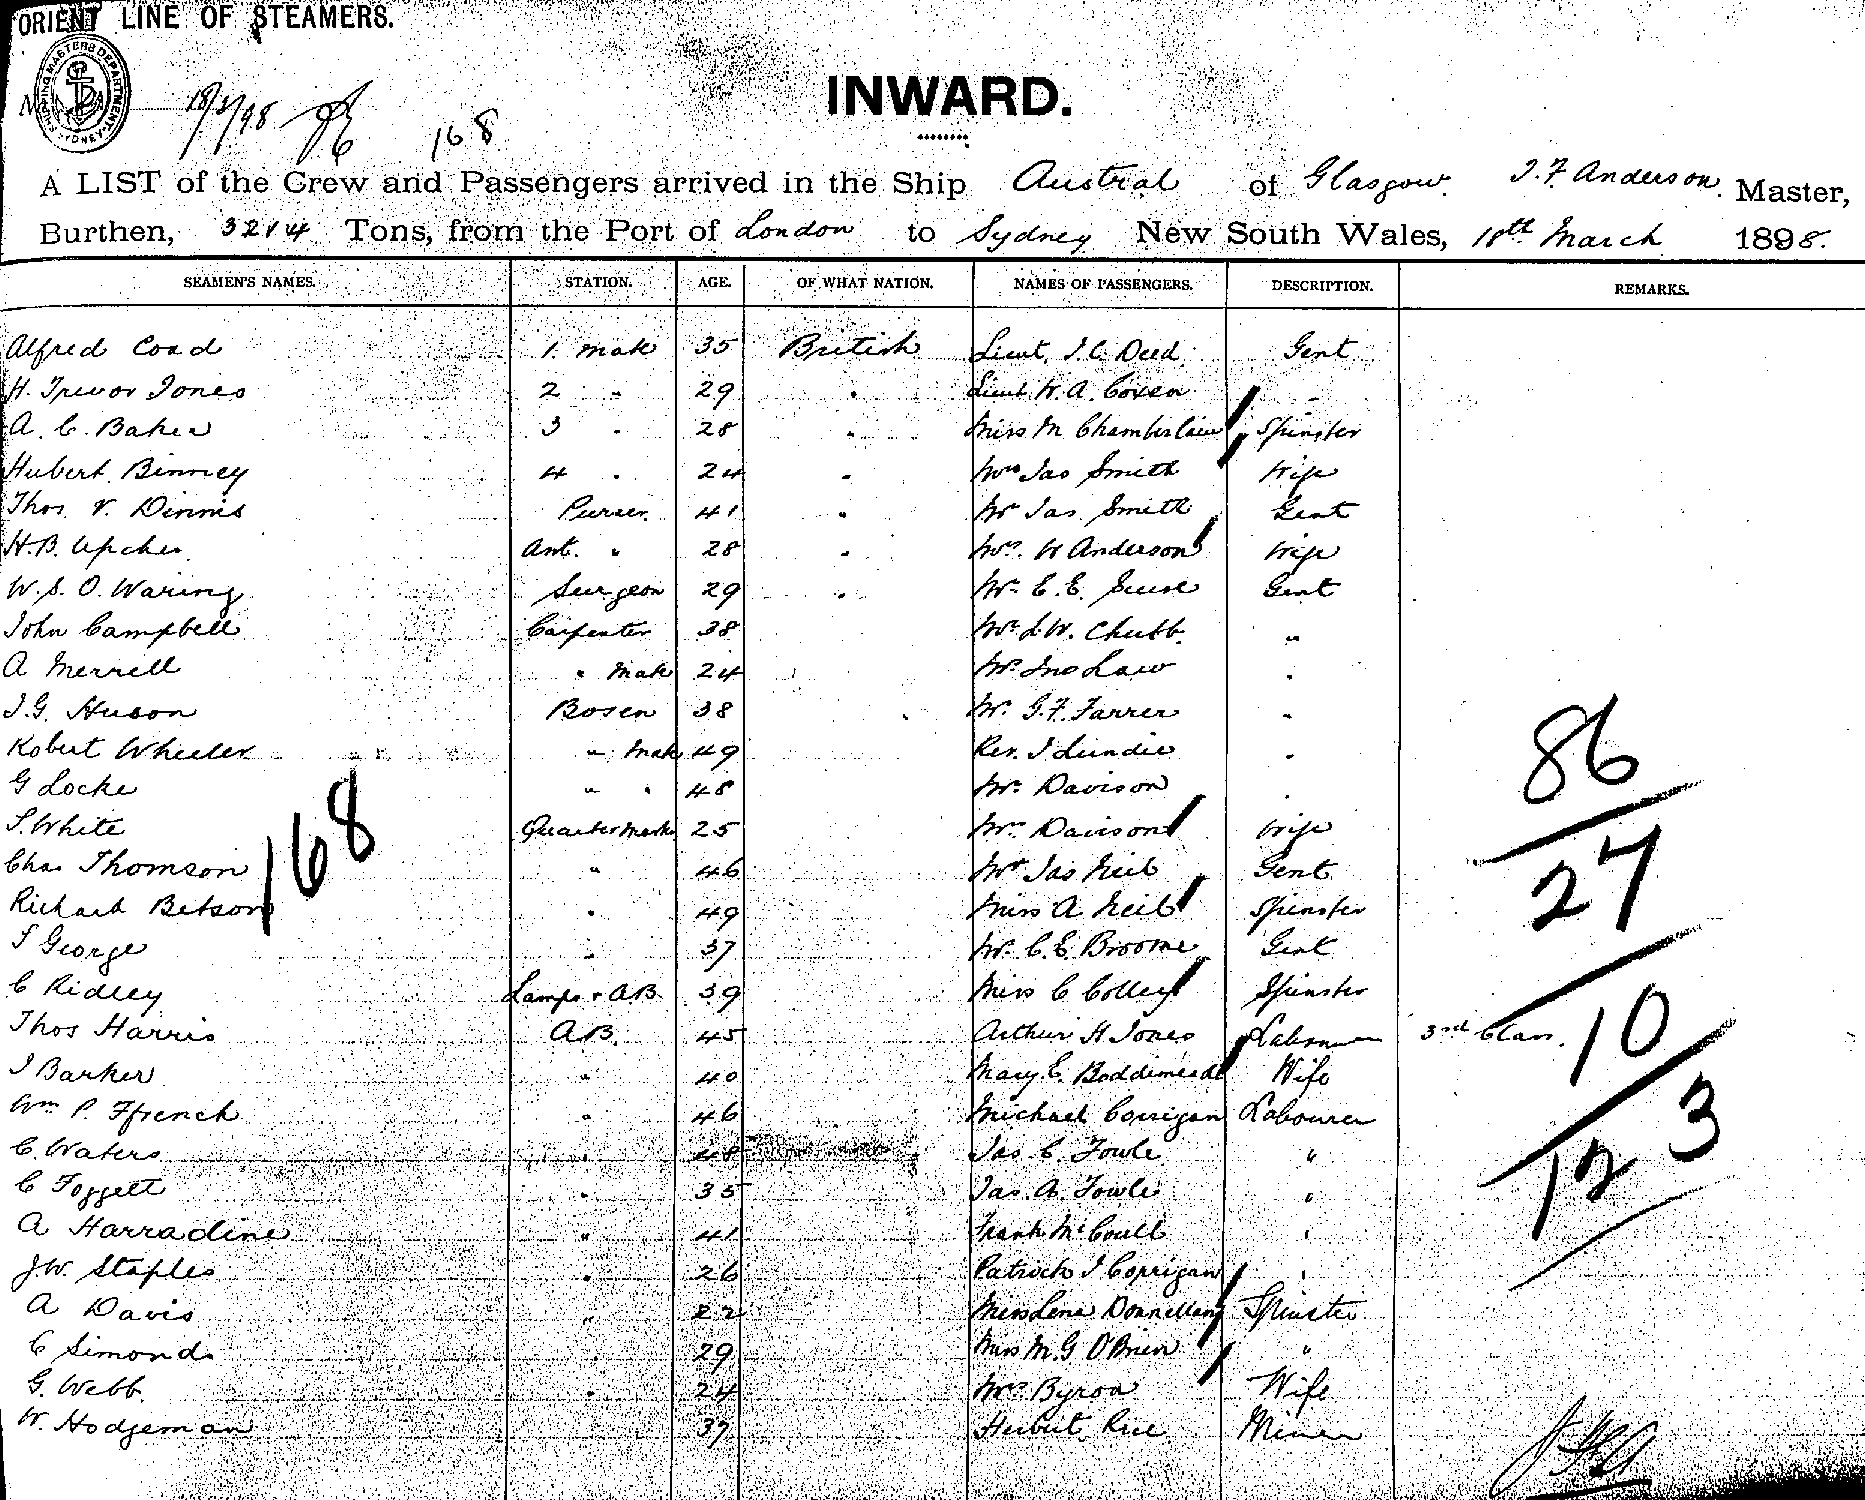 ORIENT LINE OF STEAMERS.
SHIPPING MASTERS DEPARTMENT SYDNEY
18/3/98 168
INWARD.
A LIST of the Crew and Passengers arrived in the Ship Austral of Glasgow. J. F. Anderson. Master,
Burthen, 3214 Tons, from the Port of London to Sydney New South Wales, 18th March 1898.
SEAMEN'S NAMES. STATION. AGE. OF WHAT NATION. NAMES OF PASSENGERS. DESCRIPTION. REMARKS.
Alfred Coad 1. Mate 35 British Lieut. J. C. Deed Gent
H. Trevor Jones 2 " 29 " Lieut W. A. Coxen
A. C. Baker 3 " 28 " Miss M Chamberlain Spinster
Hubert Binney 4 " 24 " Mrs Jas Smith Wife
Thos V. Dinnis Purser 41 " Mr Jas Smith Gent
H. B. Upcher Asst. " 28 " Mrs. W Anderson Wife
W. S. O. Waring Surgeon 29 " Mr. C. E. Gent
John Campbell Carpenter 38 Mr. L. W. Chubb "
A Merrell " Mate 24 Mr. Jno Law "
J. G. Huson Bosen 38 Mr. G. F. Farrer "
Robert Wheeler " Mate 49 Rev. J Lundie "
G Locke " " 48 Mr. Davison "
S. White Quartermaster 25 Mrs Davison Wife
Chas Thomson " 46 Mr Jas Neil Gent
Richard Betson " 49 Miss A Neil Spinster
J George " 37 Mr. C. E. Broome Gent
C Ridley Lamps & AB 39 Miss C Colley Spinster
Thos Harris A.B. 45 Arthur H Jones Labourer 3rd Class.
J Barker " 40 Mary E. Wife
Wm P. Ffrench " 46 Michael Corrigan Labourer
C. Waters " 48 Jas C. Fowle "
C Foggett " 35 Jas. A. Fowle "
A Harradine " 41 Frank "
J. W. Staples " 26 Patrick J Corrigan "
A Davis " 22 Miss Lena Donnellan Spinster
C Simonds 29 Miss M. G O'Brien "
G. Webb " 24 Mrs Byron Wife
W. Hodgeman 37 Herbert Rice Miner
168
86
27
10
3
12